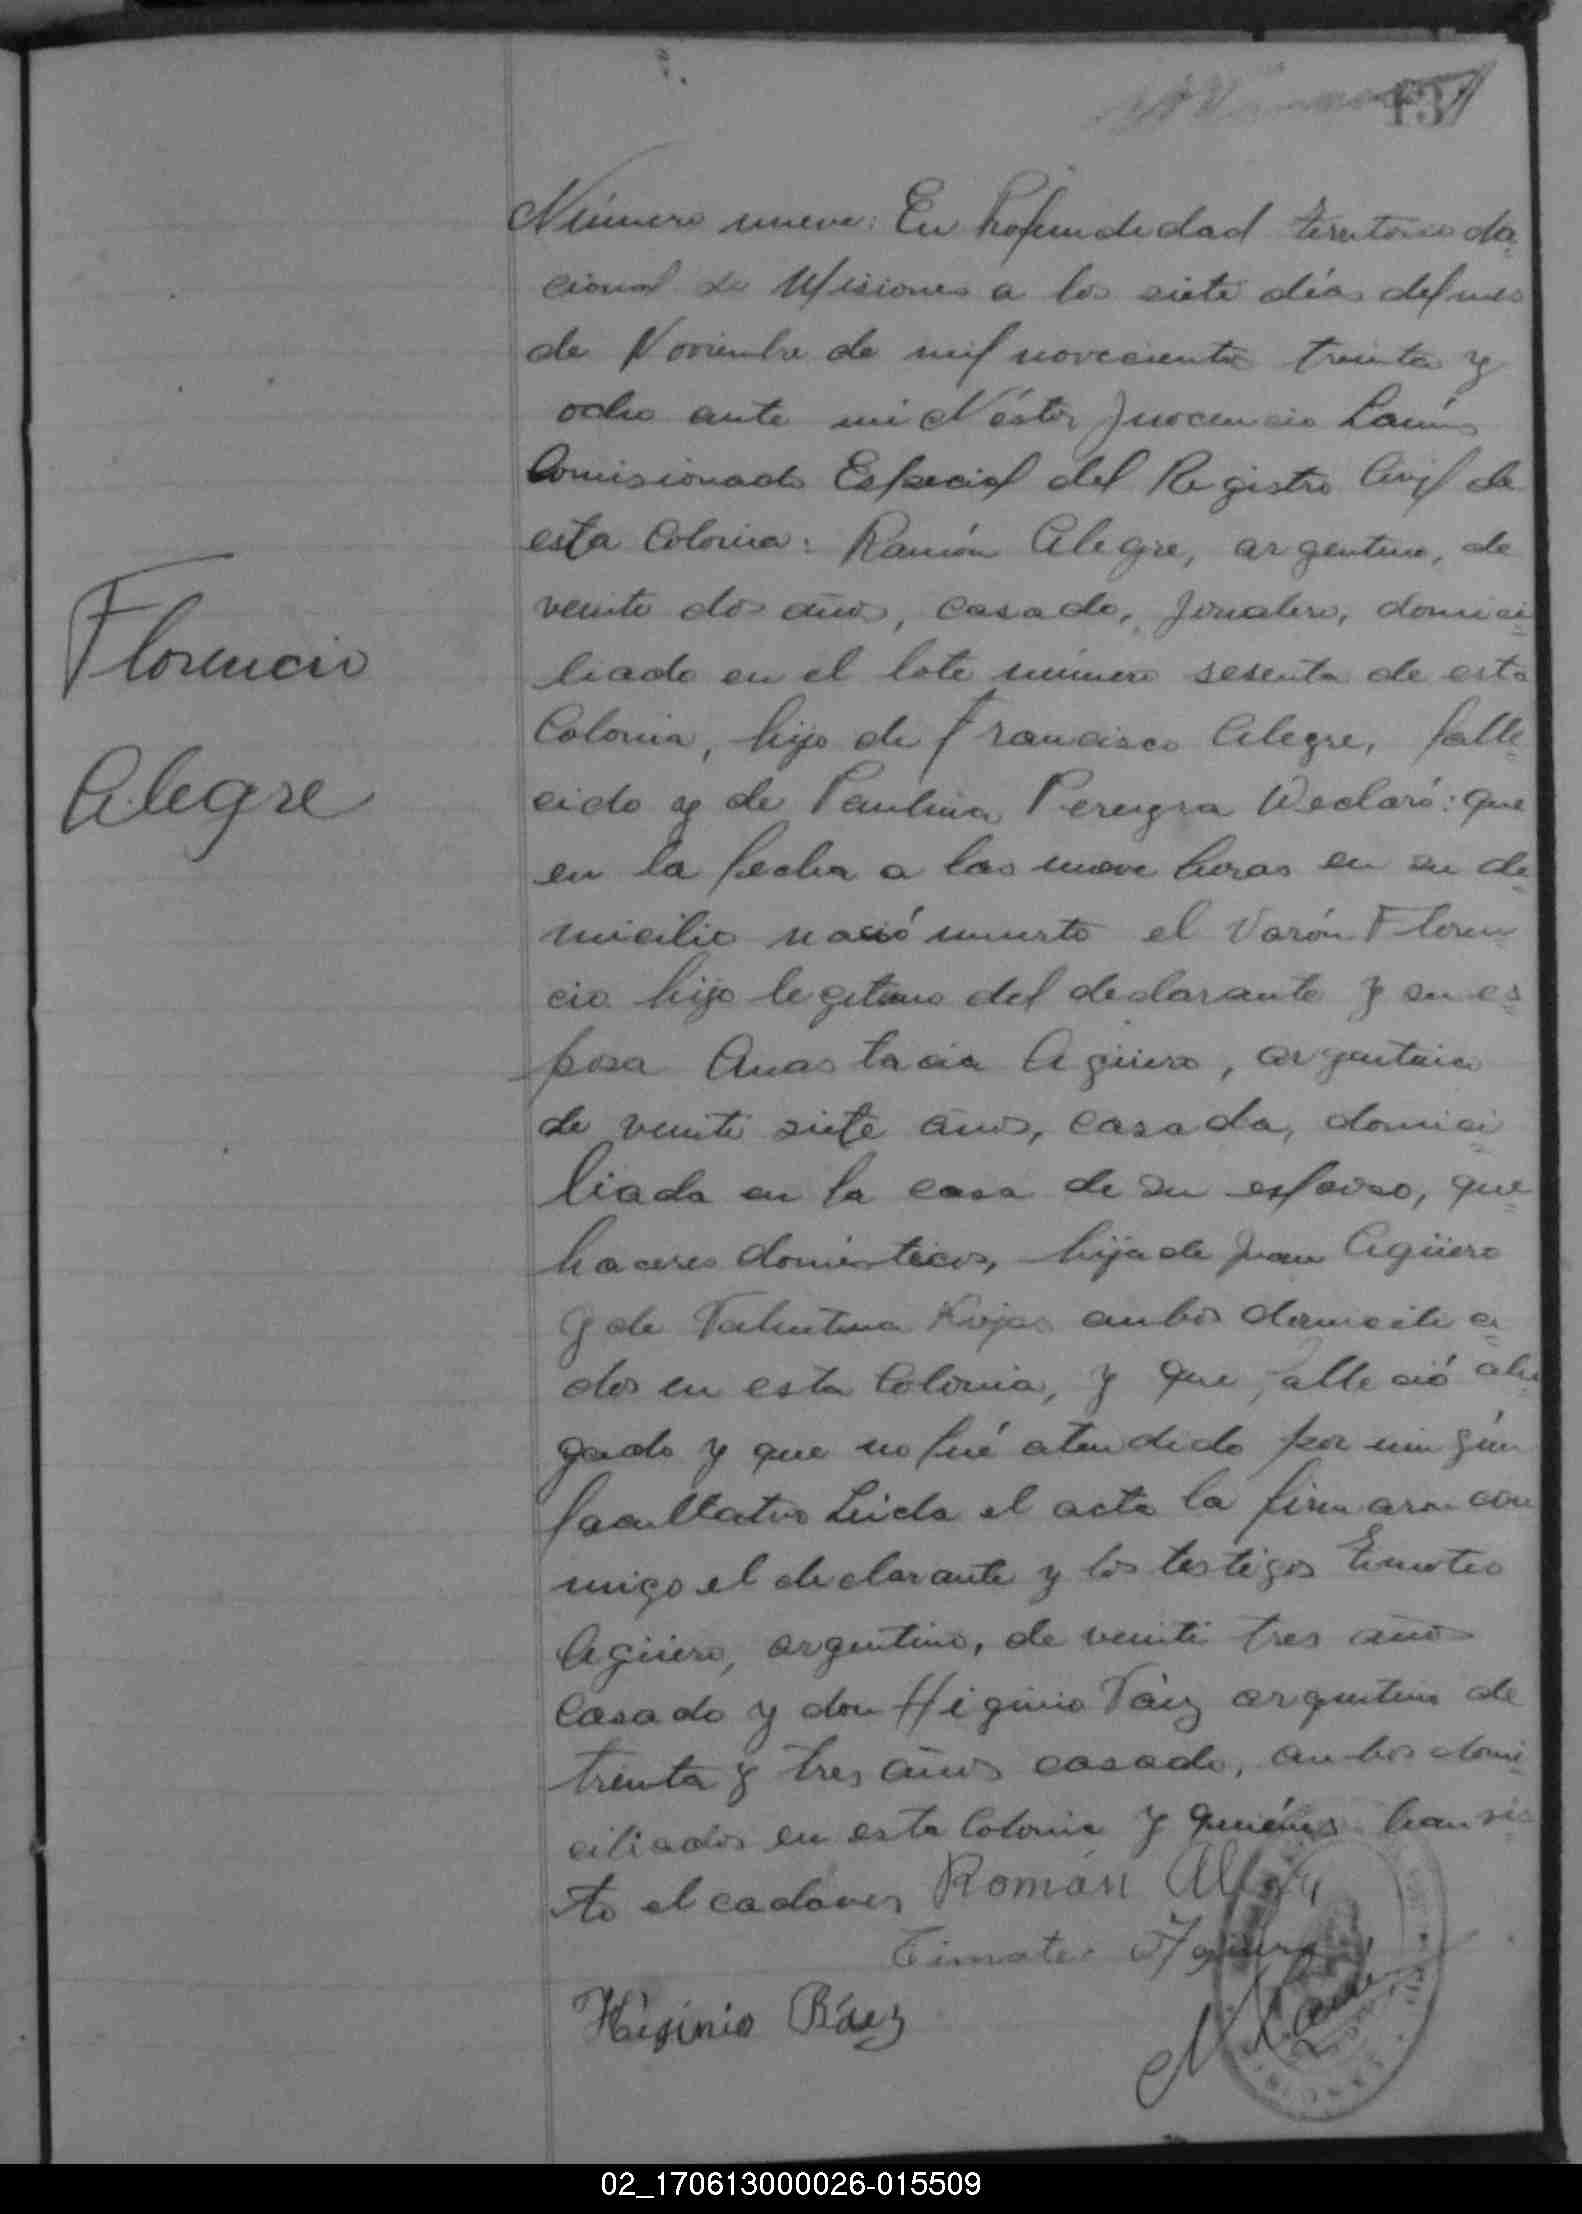 137
Número nueve: En Profundidad territorio na=
cional de Misiones a los siete días del mes
de Noviembre de mil novecientos treinta y
ocho ante mi Néstor Inocencio Lanús
Comisionado Especial del Registro Civil de
esta Colonia: Ramón Alegre, argentino, de
veinte dos años, casado, jornalero, domici=
liado en el lote número sesenta de esta
Colonia, hijo de Francisco Alegre, falle=
cido y de Paulina Pereyra Declaró: que
en la fecha a las nueve horas en su do=
micilio nació muerto el varón Floren=
cio hijo legitimo del declarante y su es=
posa Anastacia Agüero, argentina
de veinti siete años, casada, domici=
liada en la casa de su esposo, que=
haceres domésticos, hija de Juan Agüero
y de Rojas ambos domicilia=
dos en esta Colonia, y que falleció aho=
gado y que no fué atendido por ningún
facultativo Leída el acta la firmaron con
migo el declarante y los testigos Timoteo
Agüero, argentino, de veinti tres años
casado y don Higinio Báez argentino de
treinta y tres años casado, ambos domi=
ciliados en esta Colonia y quiénes han vis=
to el cadaver
Florencio
Alegre
Román
Timoteo Aguero
Higinio Báez
N Lanús
02_170613000026-015509